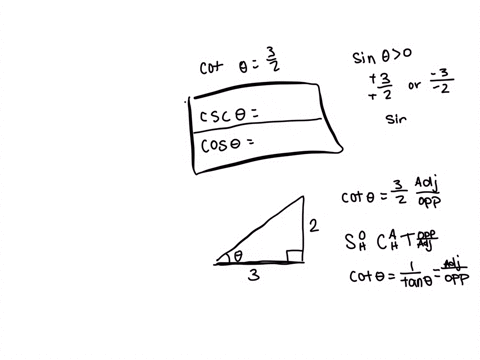 cot θ = 3/2
cscθ =
cosθ =
sin θ>0
+3/+2 or -3/-2
sin
cotθ = 3/2 Adj/opp
S O/H C A/H T opp/Adj
cotθ = 1/tanθ = Adj/opp
2
θ
3